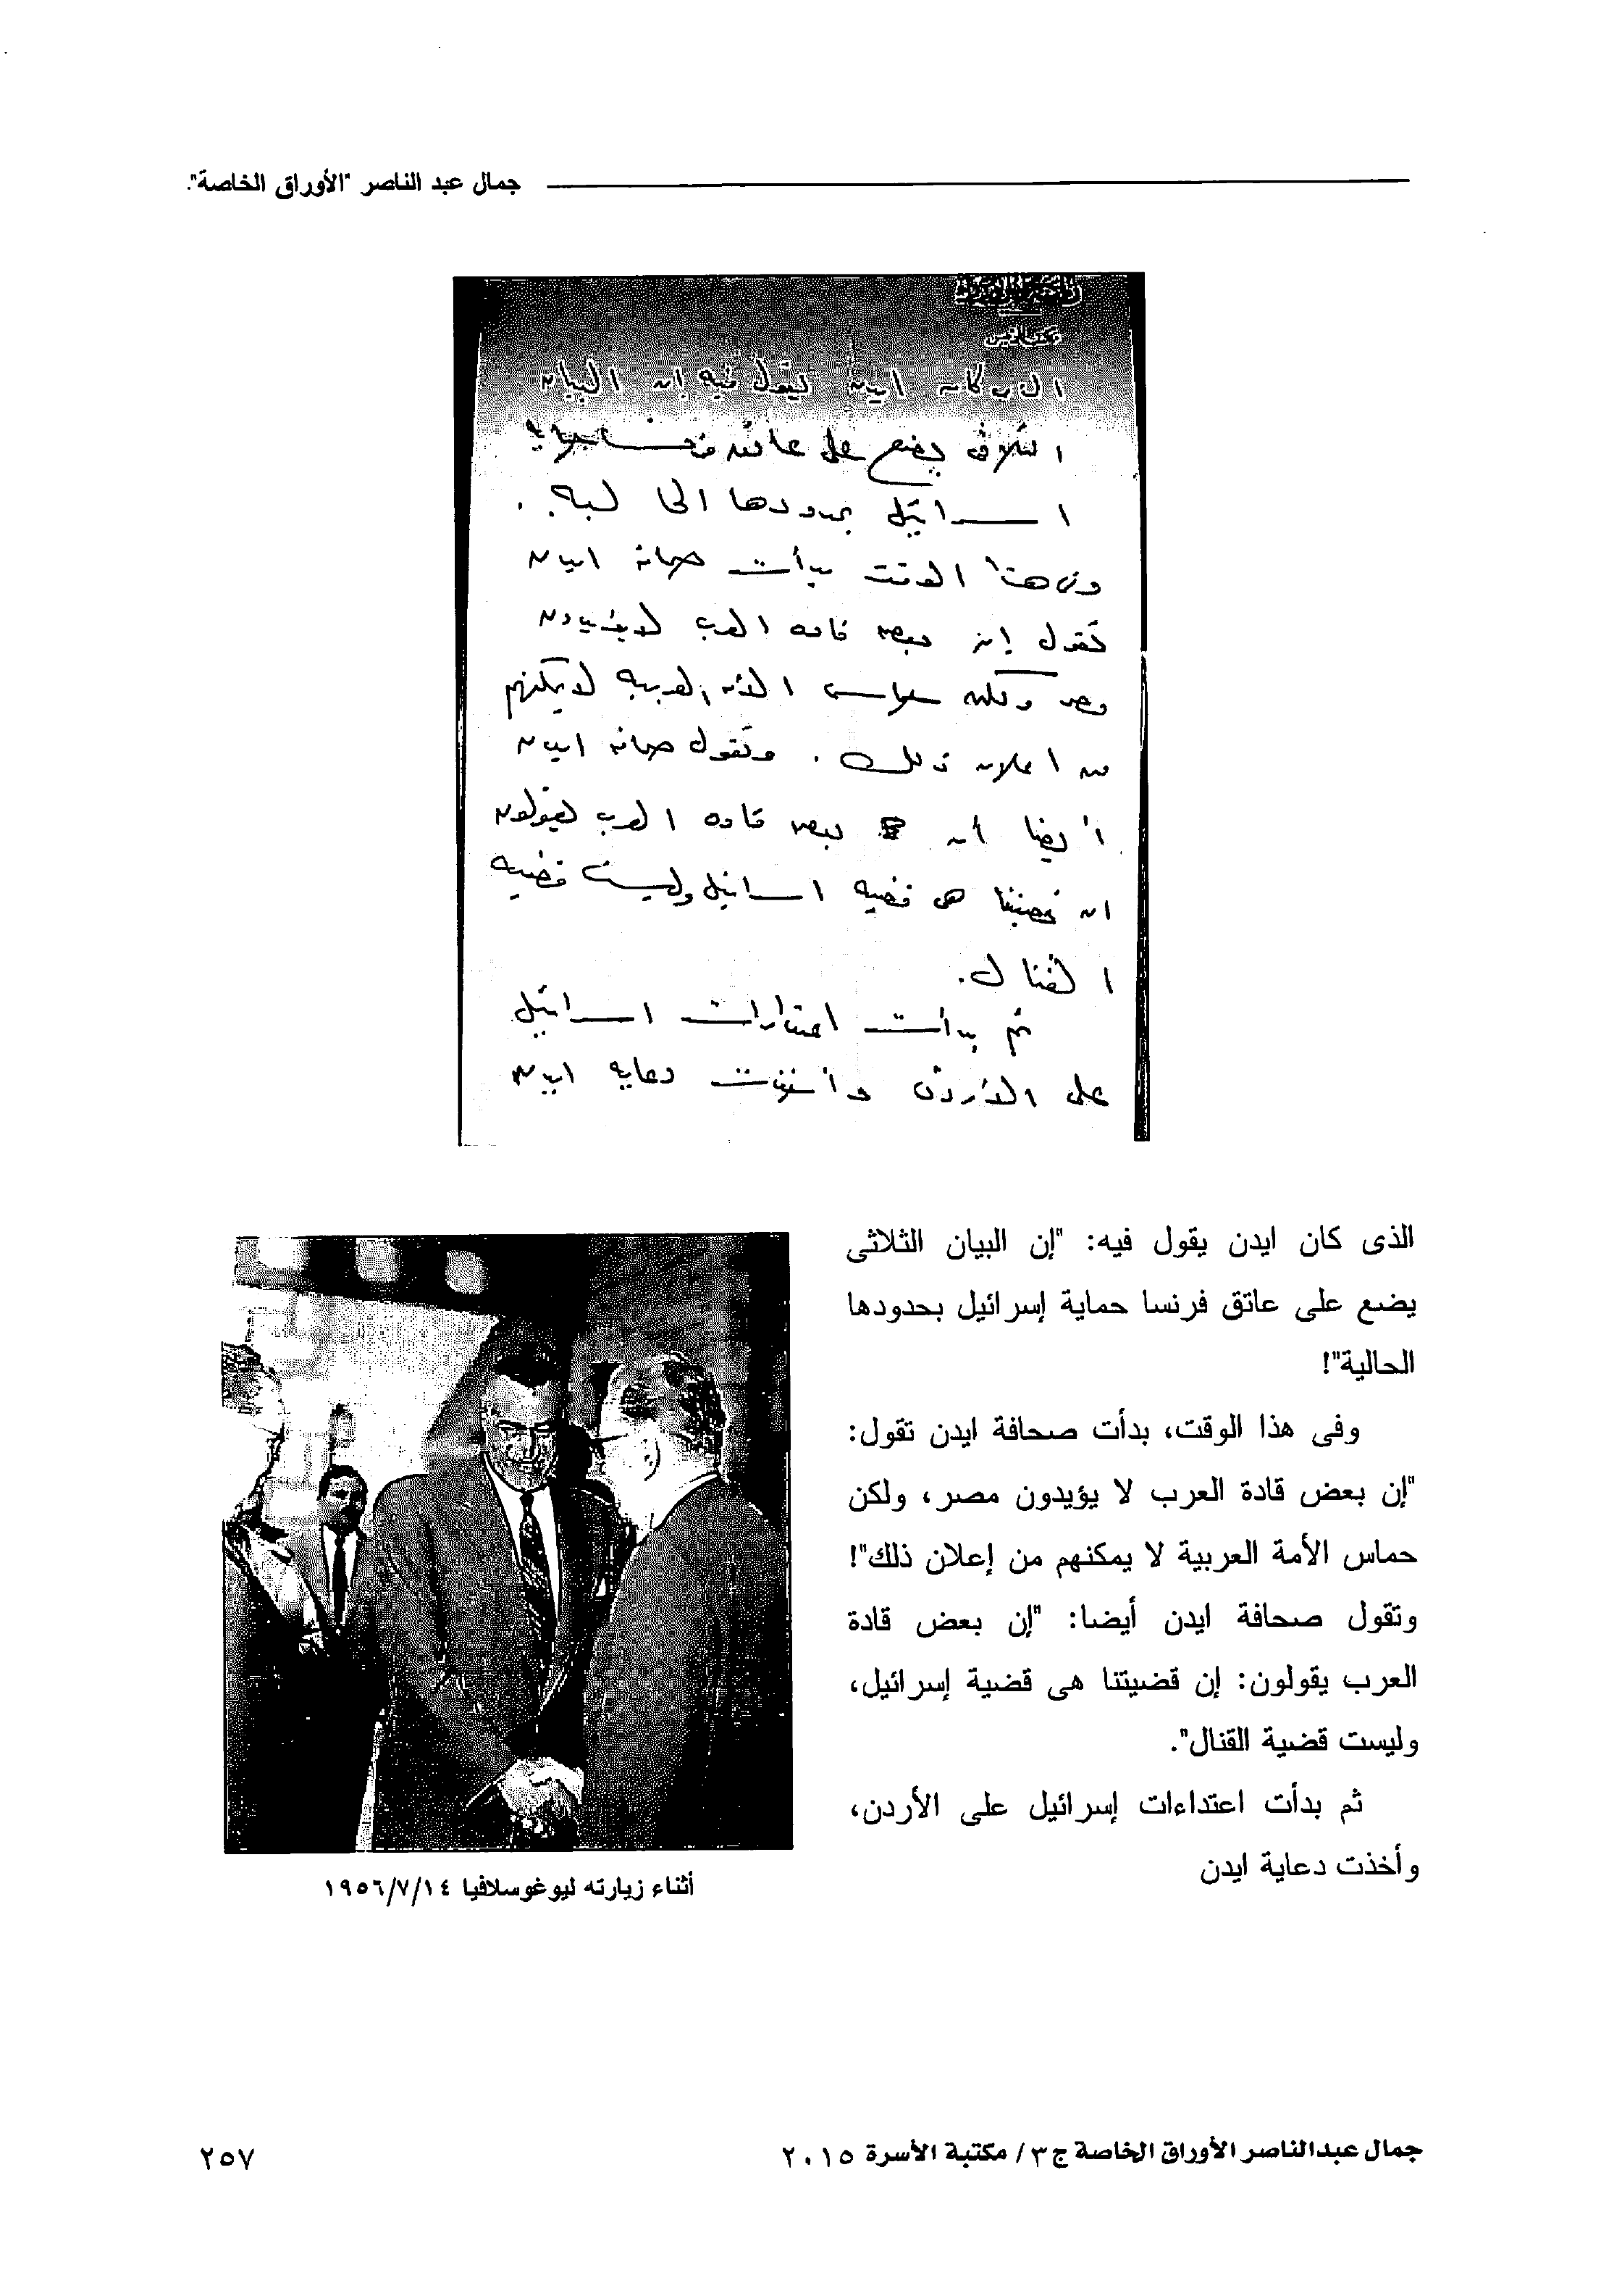 جمال عبد الناصر "الأوراق الخاصة".
الذى كان ايدن يقول فيه ان البيان
الثلاثى يضع على عاتق
اسرائيل بحدودها الحاليه.
وفى هذا الوقت بدأت صحافة ايدن
تقول إن بعض قاده العرب لا يؤيدون
مصر ولكن حماس الأمه العربيه لا يمكنهم
من اعلان ذلك. وتقول صحافه ايدن
أيضا أن بعض قاده العرب يقولون
ان قضيتنا هى قضيه اسرائيل وليست قضيه
القنال.
ثم بدأت اعتداءات اسرائيل
على الأردن وأخذت دعايه ايدن
الذى كان ايدن يقول فيه: "إن البيان الثلاثى
يضع على عاتق فرنسا حماية إسرائيل بحدودها
الحالية"!
وفى هذا الوقت، بدأت صحافة ايدن تقول:
"إن بعض قادة العرب لا يؤيدون مصر، ولكن
حماس الأمة العربية لا يمكنهم من إعلان ذلك"!
وتقول صحافة ايدن أيضا: "إن بعض قادة
العرب يقولون: إن قضيتنا هى قضية إسرائيل،
وليست قضية القنال".
ثم بدأت اعتداءات إسرائيل على الأردن،
وأخذت دعاية ايدن
أثناء زيارته ليوغوسلافيا ١٩٥٦/٧/١٤
جمال عبدالناصر الأوراق الخاصة ج٣/ مكتبة الأسرة ٢٠١٥
٢٥٧